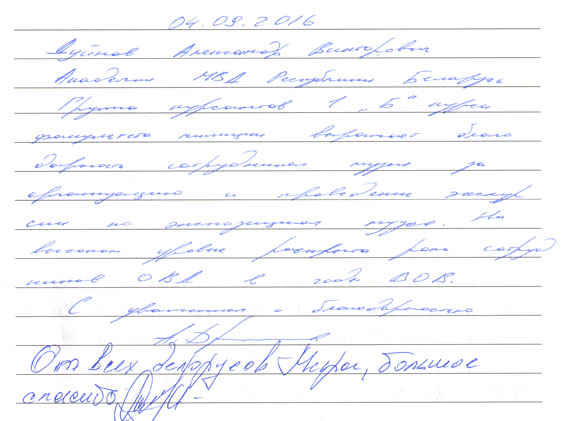 04.09.2016
Александр Викторович
Академия МВД Республики Беларусь
Группа курсантов 1 „Б“ курса
факультета милиции выражает благо
дарность сотрудникам музея за
организацию и проведение экскур
сии по экспозициям музея. На
высоком уровне раскрыта роль сотруд
ников ОВД в годы ВОВ.
С уважением и благодарностью
От всех белорусов Мира, большое
спасибо